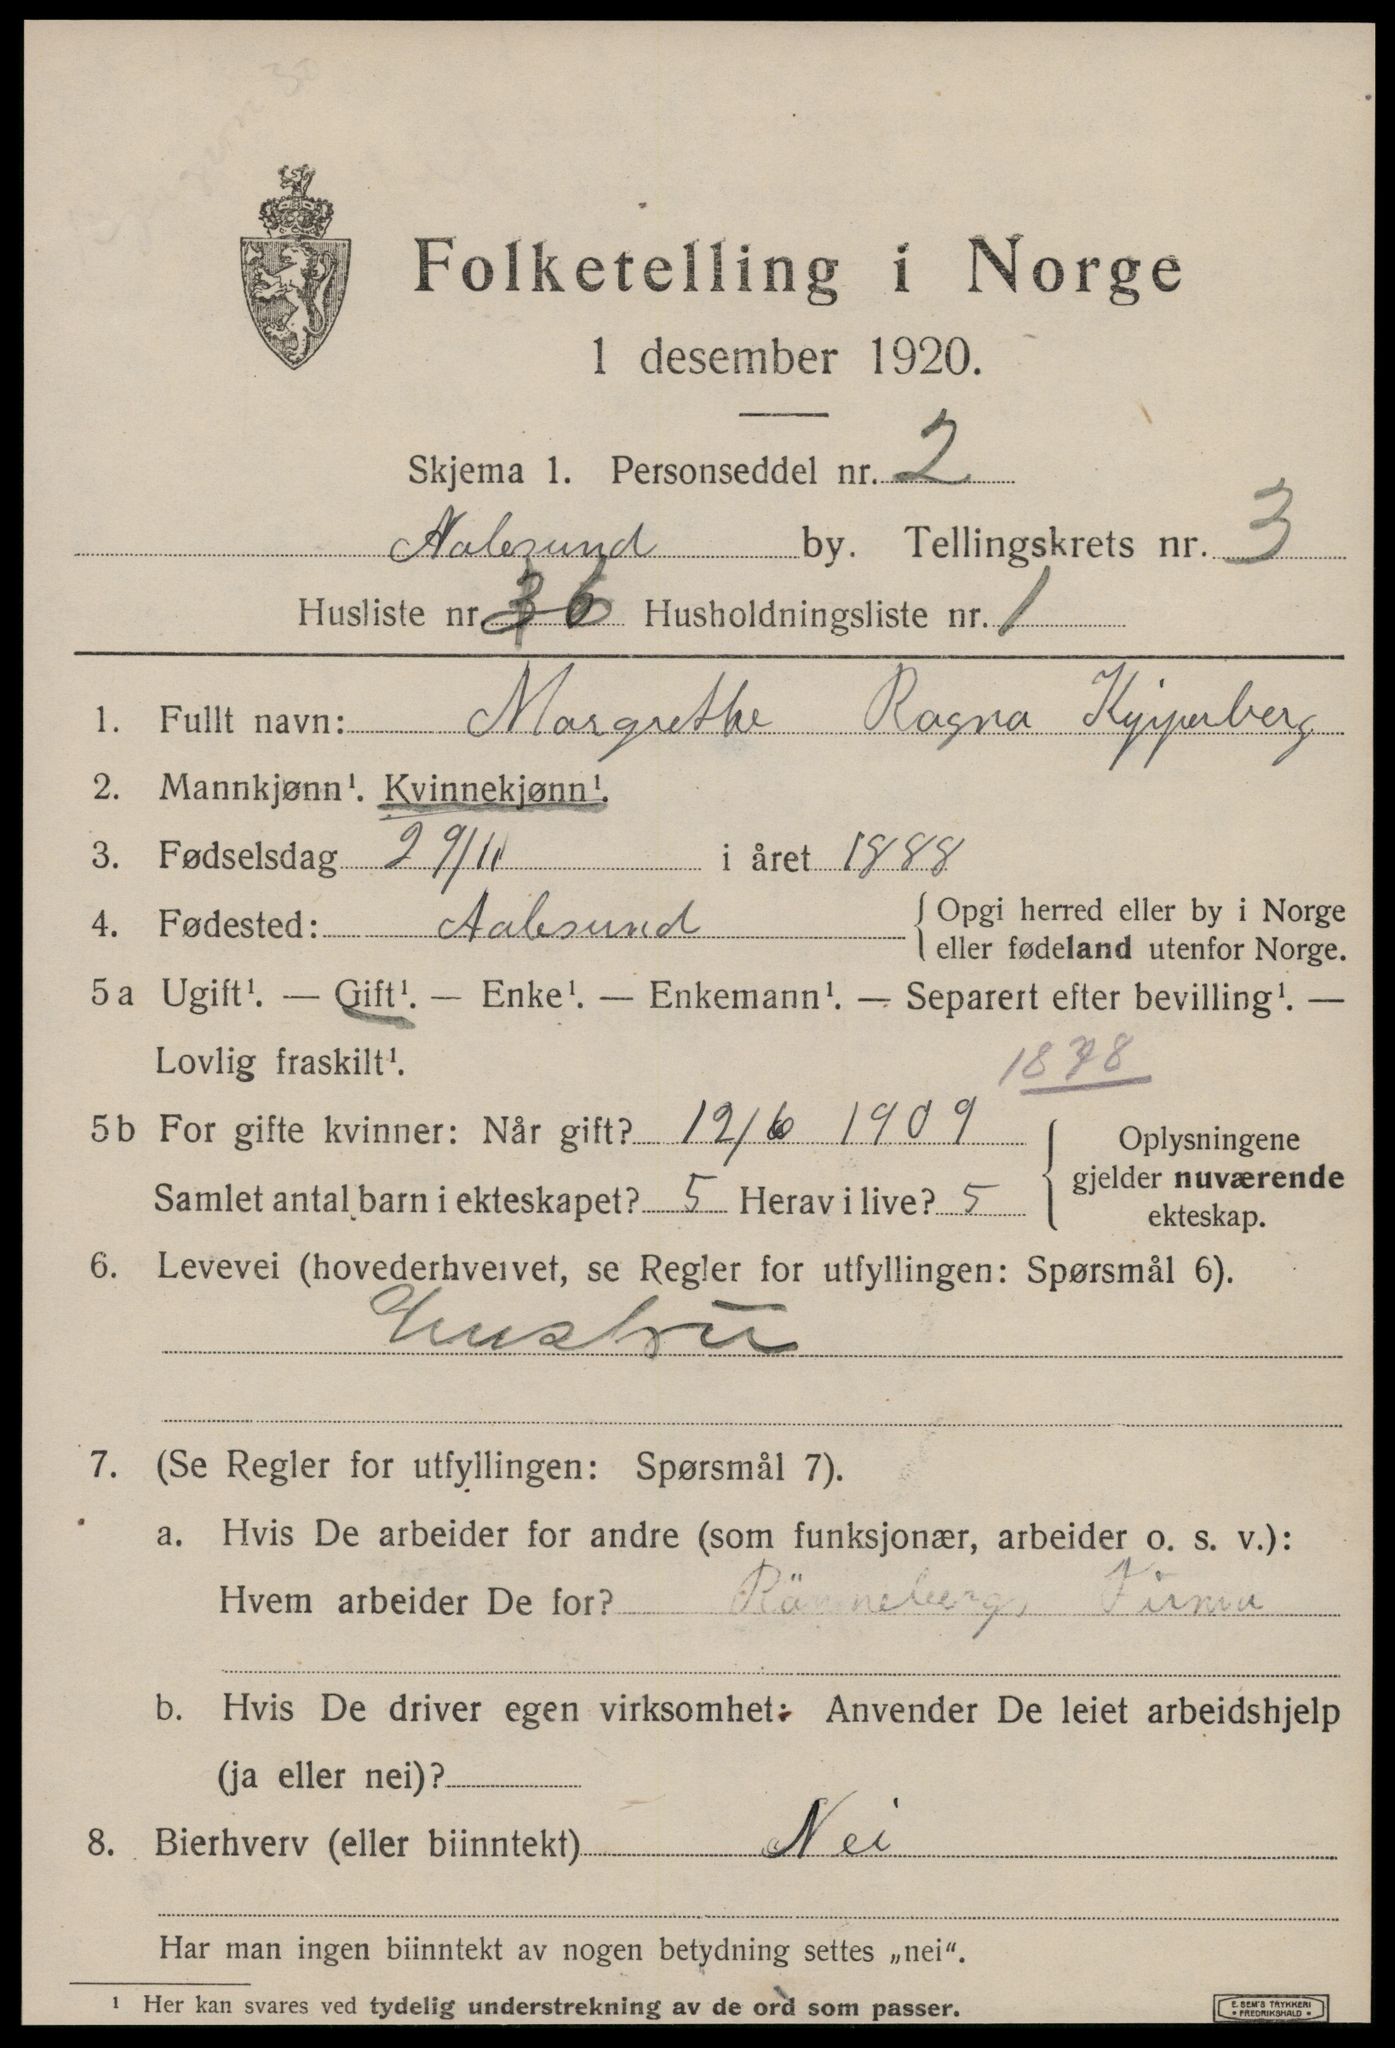 Folketelling i Norge
1 desember 1920.
Skjema 1. Personseddel nr. 2
Aalesund by. Tellingskrets nr. 3
Husliste nr. 36 Husholdningsliste nr. 1
1. Fullt navn: Margrethe Ragna Kipperberg
2. Mannkjønn¹. Kvinnekjønn¹.
3. Fødselsdag 29/11 i året 1888
4. Fødested: Aalesund { Opgi herred eller by i Norge
eller fødeland utenfor Norge.
5a Ugift¹. — Gift¹. — Enke¹. — Enkemann¹. — Separert efter bevilling¹. —
Lovlig fraskilt¹. 1878
5b For gifte kvinner: Når gift? 12/6 1909
Samlet antal barn i ekteskapet? 5 Herav i live? 5
{ Oplysningene
gjelder nuværende
ekteskap.
6. Levevei (hovederhvervet, se Regler for utfyllingen: Spørsmål 6).
Hustru
7. (Se Regler for utfyllingen: Spørsmål 7).
a. Hvis De arbeider for andre (som funksjonær, arbeider o. s. v.):
Hvem arbeider De for? Rönnebergs Firma
b. Hvis De driver egen virksomhet: Anvender De leiet arbeidshjelp
(ja eller nei)?
8. Bierhverv (eller biinntekt) Nei
Har man ingen biinntekt av nogen betydning settes „nei“.
¹ Her kan svares ved tydelig understrekning av de ord som passer.
E. SEM'S TRYKKERI
• FREDRIKSHALD •